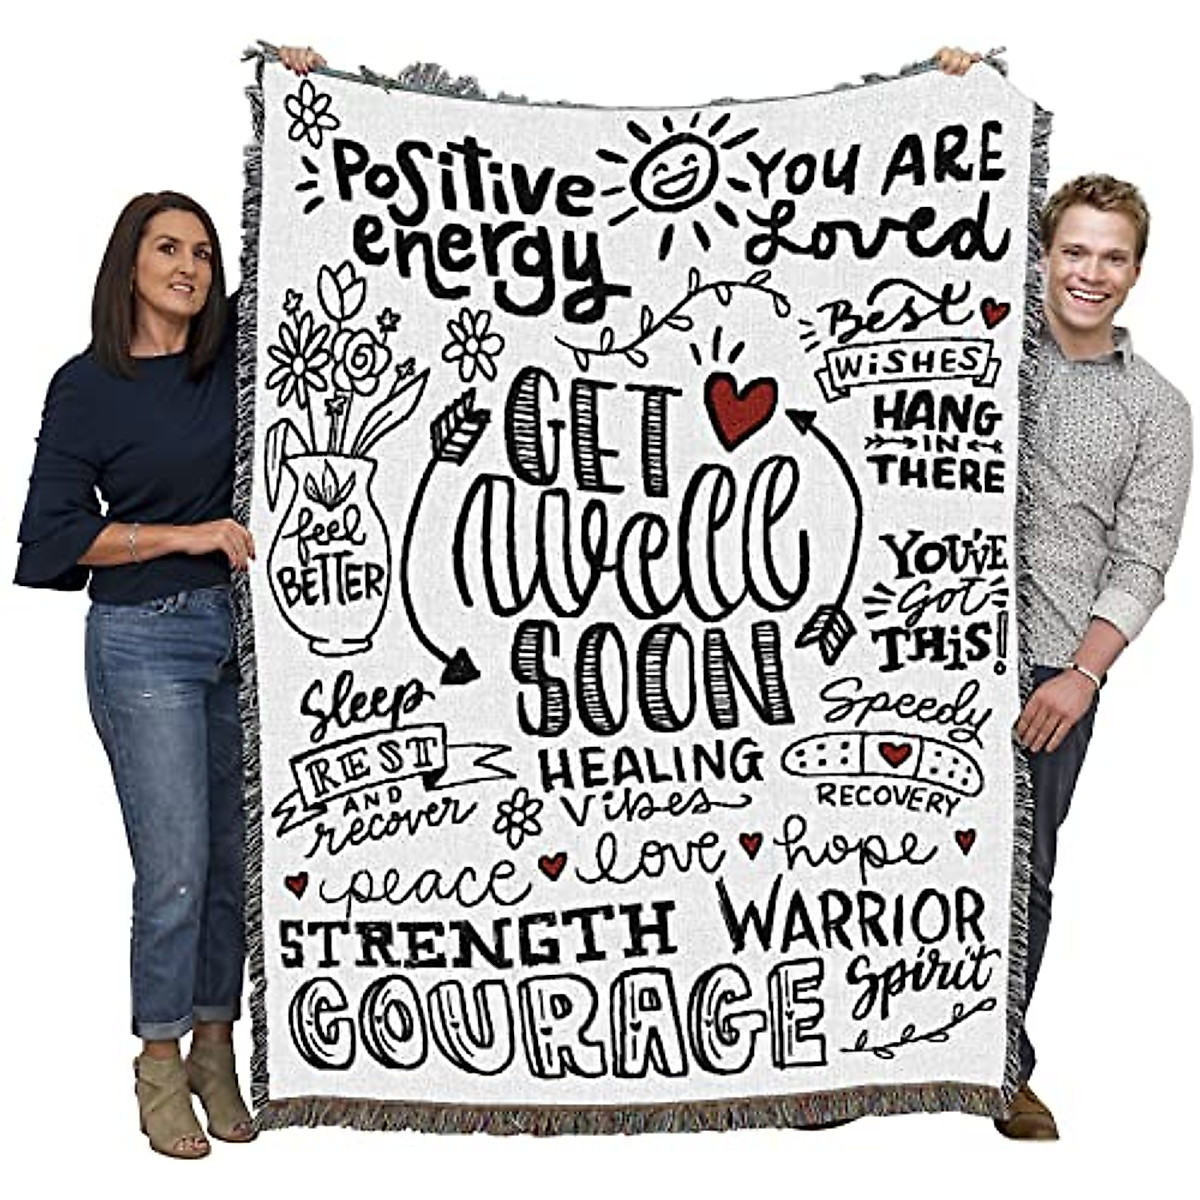 Positive
energy
YOU ARE
Loved
Best
WiSHES
HANG
IN
THERE
GET
Well
SOON
feel
BETTER
YOU'VE
Got
THiS!
Sleep
REST
AND
recover
HEALING
Vibes
Speedy
RECOVERY
peace love hope
STRENGTH
WARRIOR
Spirit
COURAGE